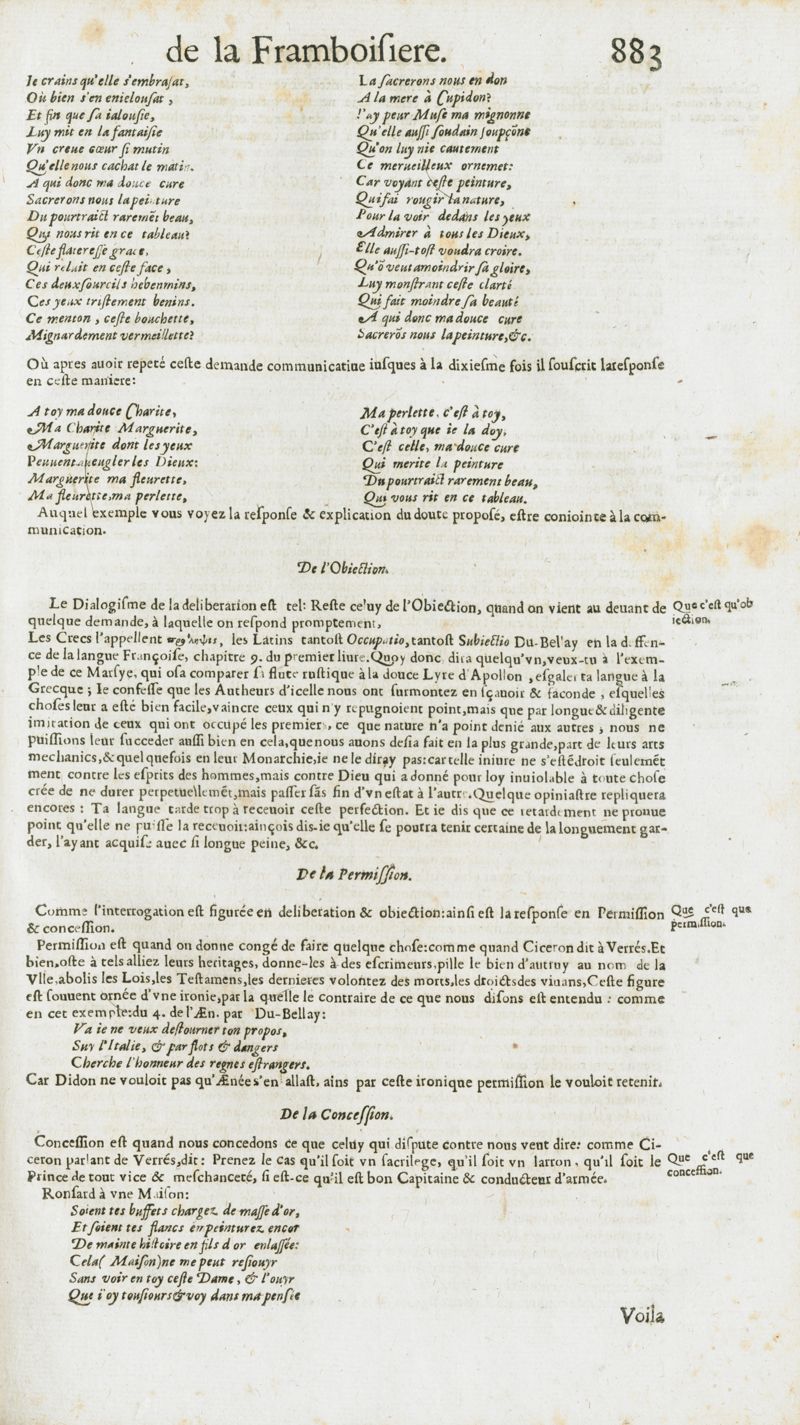 de la Framboiſiere. 883
Ie crains qu'elle s'embraſat,
Où bien s'en enielouſat,
Et fin que ſa ialouſie,
Luy mit en la fantaiſie
Vn creue cœur ſi mutin
Qu'elle nous cachat le matin.
A qui donc ma douce cure
Sacrerons nous la peinture
Du pourtraict raremēt beau,
Qui nous rit en ce tableau?
Ceſte flatereſſe grace,
Qui reluit en ceſte face,
Ces deux ſourcils hebenins,
Ces yeux triſtement benins.
Ce menton, ceſte bouchette,
Mignardement vermeillette?
La ſacrerons nous en don
A la mere à Cupidon?
I'ay peur Muſe ma mignonne
Qu'elle auſſi ſoudain ſoupçōne
Qu'on luy nie cautement
Ce merueilleux ornemet:
Car voyant ceſte peinture,
Qui fai rougir la nature,
Pour la voir dedans les yeux
Admirer à tous les Dieux,
Elle auſſi-toſt voudra croire.
Qu'ō veut amoindrir ſa gloire,
Luy monſtrant ceſte clarté
Qui fait moindre ſa beauté
A qui donc ma douce cure
Sacrerōs nous la peinture, &c.
Où apres auoir repeté ceſte demande communicatiue iuſques à la dixieſme fois il ſouſcrit la reſponſe
en ceſte maniere:
A toy ma douce Charite,
Ma Charite Marguerite,
Marguerite dont les yeux
Peuuent aueugler les Dieux:
Marguerite ma fleurette,
Ma fleurette, ma perlette,
Ma perlette, c'eſt à toy,
C'eſt à toy que ie la doy,
C'eſt celle, ma douce cure
Qui merite la peinture
Du pourtraict rarement beau,
Qui vous rit en ce tableau.
Auquel exemple vous voyez la reſponſe & explication du doute propoſé, eſtre conioincte à la com-
munication.
De l'Obiection.
Le Dialogiſme de la deliberation eſt tel: Reſte celuy de l'Obiection, quand on vient au deuant de
quelque demande, à laquelle on reſpond promptement,
Que c'eſt qu'ob
iection.
Les Grecs l'appellent, les Latins tantoſt Occupatio, tantoſt Subiectio Du-Bellay en la deffen-
ce de la langue Françoiſe, chapitre 9. du premier liure. Quoy donc dira quelqu'vn, veux-tu à l'exem-
ple de ce Marſye, qui oſa comparer ſa flute ruſtique à la douce Lyre d'Apollon, eſgaler ta langue à la
Grecque; Ie confeſſe que les Autheurs d'icelle nous ont ſurmontez en ſçauoir & faconde, eſquelles
choſes leur a eſté bien facile, vaincre ceux qui n'y repugnoient point, mais que par longue & diligente
imitation de ceux qui ont occupé les premiers, ce que nature n'a point denié aux autres, nous ne
puiſſions leur ſucceder auſſi bien en cela, que nous auons deſia fait en la plus grande, part de leurs arts
mechanics, & quelquefois en leur Monarchie, ie ne le diray pas: car telle iniure ne s'eſtēdroit ſeulemēt
ment contre les eſprits des hommes, mais contre Dieu qui a donné pour loy inuiolable à toute choſe
crée de ne durer perpetuellemēt, mais paſſer ſās fin d'vn eſtat à l'autre. Quelque opiniaſtre repliquera
encores: Ta langue tarde trop à receuoir ceſte perfection. Et ie dis que ce retardement ne prouue
point qu'elle ne puiſſe la receuoir: ainçois dis-ie qu'elle ſe pourra tenir certaine de la longuement gar-
der, l'ayant acquiſe auec ſi longue peine, &c.
De la Permiſſion.
Comme l'interrogation eſt figurée en deliberation & obiection: ainſi eſt la reſponſe en Permiſſion
& conceſſion.
Que c'eſt que
permiſſion.
Permiſſion eſt quand on donne congé de faire quelque choſe: comme quand Ciceron dit à Verrés. Et
bien, oſte à tels alliez leurs heritages, donne-les à des eſcrimeurs, pille le bien d'autruy au nom de la
Ville, abolis les Lois, les Teſtamens, les dernieres volontez des morts, les droicts des viuans, Ceſte figure
eſt ſouuent ornée d'vne ironie, par la quelle le contraire de ce que nous diſons eſt entendu: comme
en cet exemple: du 4. de l'Æn. par Du-Bellay:
Va ie ne veux deſtourner ton propos,
Suy l'Italie, & par flots & dangers
Cherche l'honneur des regnes eſtrangers.
Car Didon ne vouloit pas qu'Ænée s'en allaſt, ains par ceſte ironique permiſſion le vouloit retenir.
De la Conceſſion.
Conceſſion eſt quand nous concedons ce que celuy qui diſpute contre nous veut dire: comme Ci-
ceron parlant de Verrés, dit: Prenez le cas qu'il ſoit vn ſacrilege, qu'il ſoit vn larron, qu'il ſoit le
Prince de tout vice & meſchanceté, ſi eſt-ce qu'il eſt bon Capitaine & conducteur d'armée.
Que c'eſt que
conceſſion.
Ronſard à vne Maiſon:
Soient tes buffets chargez de maſſe d'or,
Et ſoient tes flancs empeinturez encor
De mainte hiſtoire en fils d'or enlaſſée:
Cela (Maiſon) ne me peut reſiouyr
Sans voir en toy ceſte Dame, & l'ouyr
Que i'oy touſiours & voy dans ma penſée
Voila